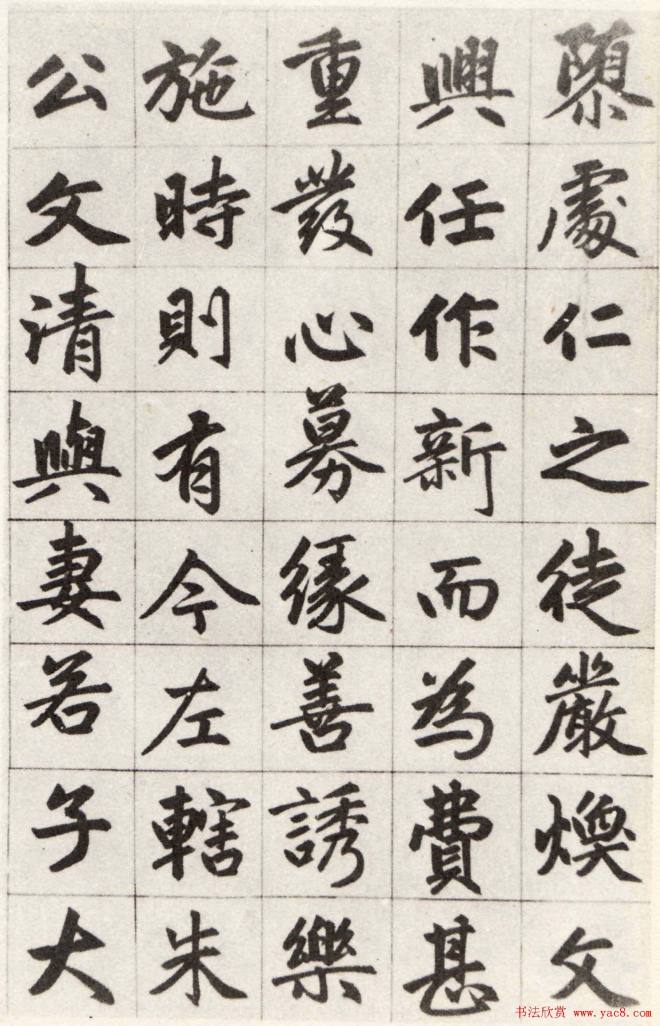 處仁之徒嚴煥文
興任作新而為費甚
重發心募緣善誘樂
施時則有今左轄朱
公文清與妻若子大
书法欣赏 www.yac8.com